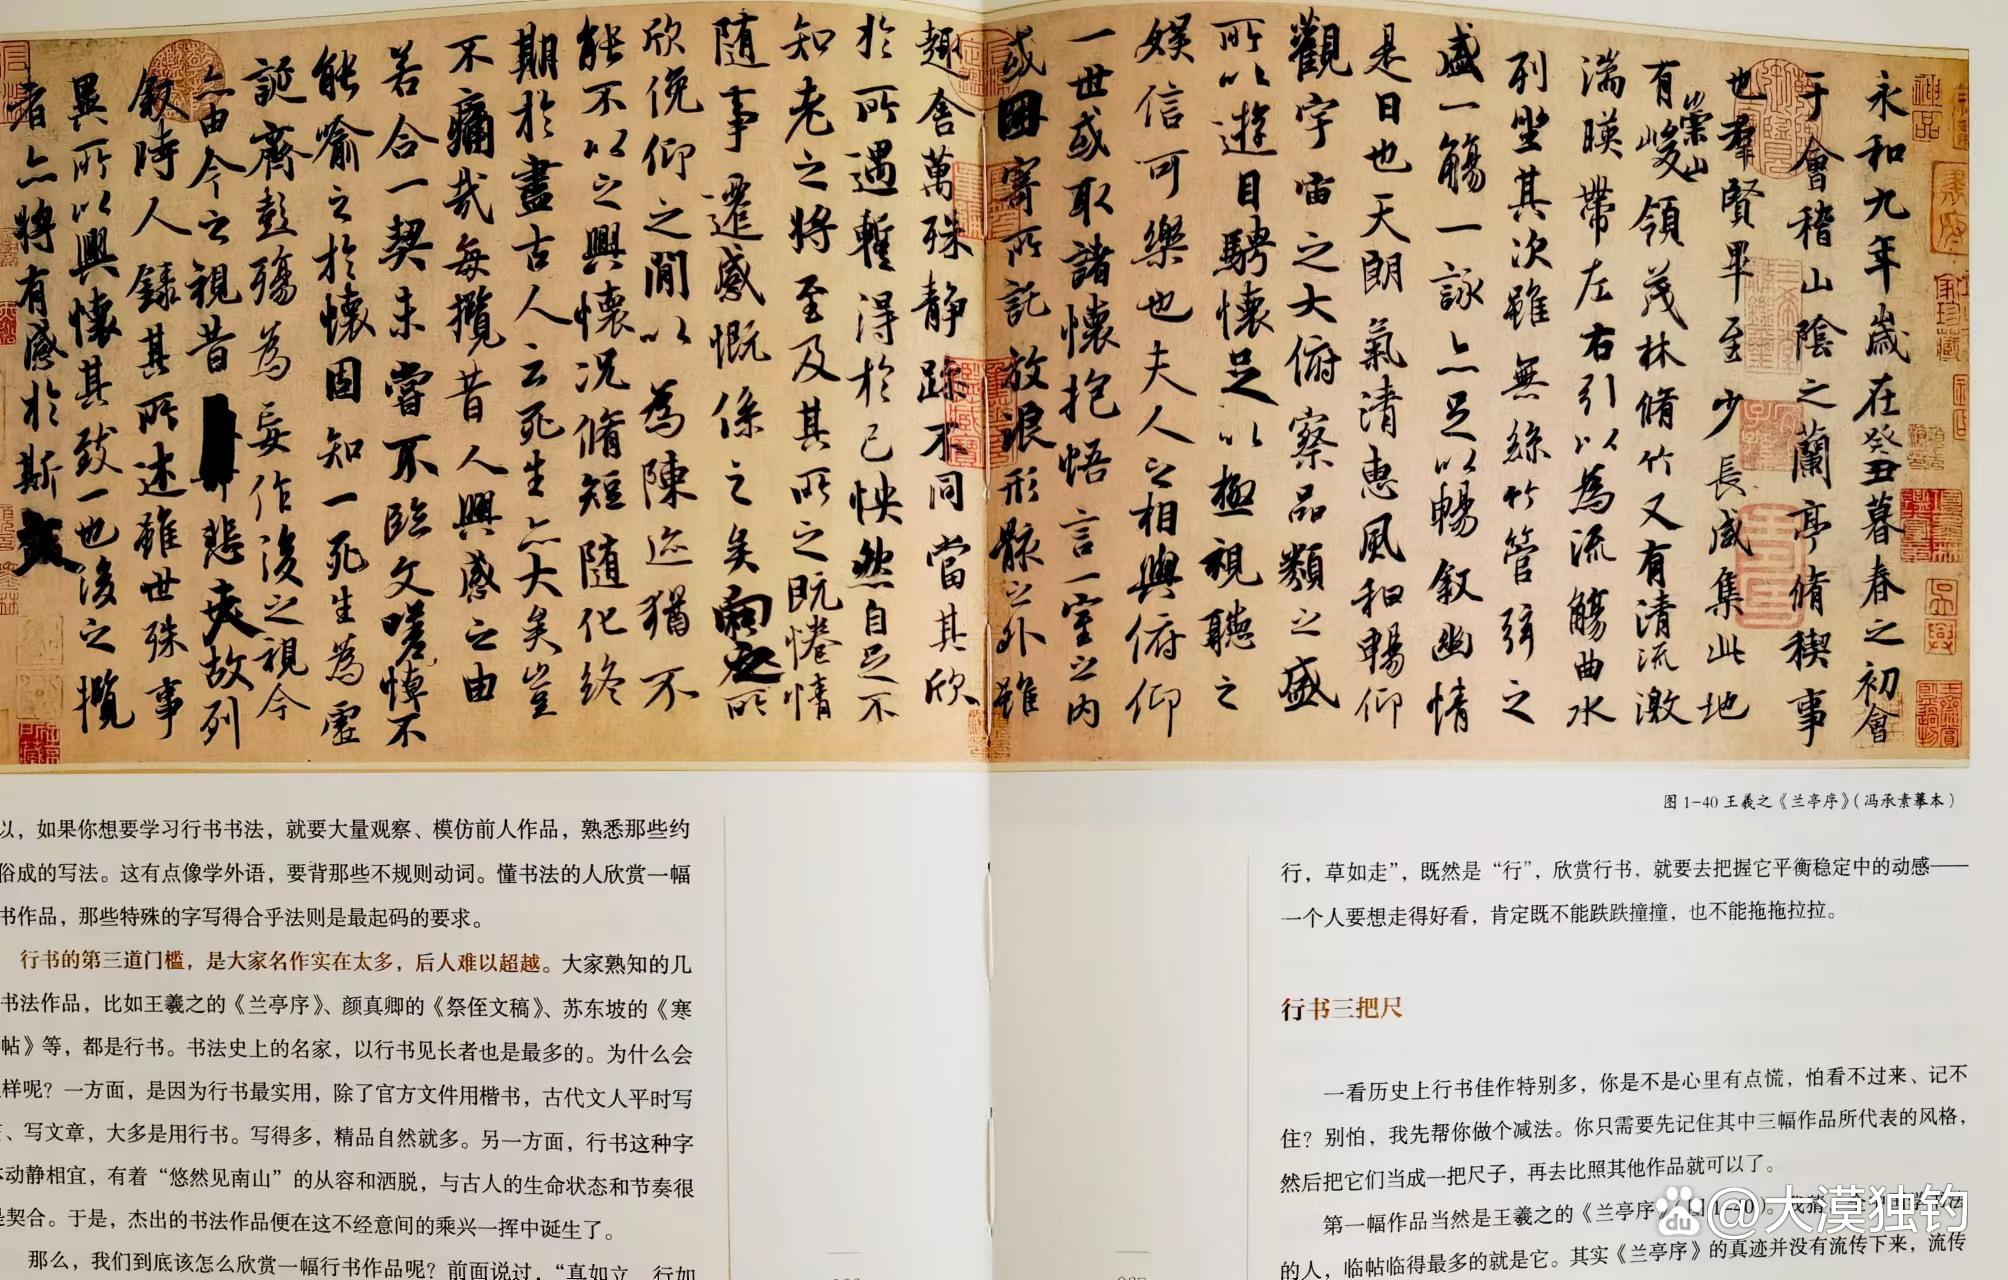 永和九年歲在癸丑暮春之初會
于會稽山陰之蘭亭脩稧事
也羣賢畢至少長咸集此地
有崇山峻領茂林脩竹又有清流激
湍暎帶左右引以為流觴曲水
列坐其次雖無絲竹管弦之
盛一觴一詠亦足以暢叙幽情
是日也天朗氣清惠風和暢仰
觀宇宙之大俯察品類之盛
所以遊目騁懷足以極視聽之
娛信可樂也夫人之相與俯仰
一世或取諸懷抱悟言一室之內
或因寄所託放浪形骸之外雖
趣舍萬殊静躁不同當其欣
於所遇暫得於己怏然自足不
知老之將至及其所之既惓情
随事遷感慨係之矣向之所
欣俛仰之閒以為陳迹猶不
能不以之興懷况脩短随化終
期於盡古人云死生亦大矣豈
不痛哉每攬昔人興感之由
若合一契未嘗不臨文嗟悼不
能喻之於懷固知一死生為虛
誕齊彭殤為妄作後之視今
亦由今之視昔悲夫故列
叙時人錄其所述雖世殊事
異所以興懷其致一也後之攬
者亦將有感於斯文
图 1-40 王羲之《兰亭序》(冯承素摹本)
以，如果你想要学习行书书法，就要大量观察、模仿前人作品，熟悉那些约
俗成的写法。这有点像学外语，要背那些不规则动词。懂书法的人欣赏一幅
书作品，那些特殊的字写得合乎法则是最起码的要求。
行书的第三道门槛，是大家名作实在太多，后人难以超越。大家熟知的几
书法作品，比如王羲之的《兰亭序》、颜真卿的《祭侄文稿》、苏东坡的《寒
帖》等，都是行书。书法史上的名家，以行书见长者也是最多的。为什么会
样呢？一方面，是因为行书最实用，除了官方文件用楷书，古代文人平时写
、写文章，大多是用行书。写得多，精品自然就多。另一方面，行书这种字
体动静相宜，有着“悠然见南山”的从容和洒脱，与古人的生命状态和节奏很
是契合。于是，杰出的书法作品便在这不经意间的乘兴一挥中诞生了。
那么，我们到底该怎么欣赏一幅行书作品呢？前面说过，“真如立，行如
行，草如走”，既然是“行”，欣赏行书，就要去把握它平衡稳定中的动感——
一个人要想走得好看，肯定既不能跌跌撞撞，也不能拖拖拉拉。
行书三把尺
一看历史上行书佳作特别多，你是不是心里有点慌，怕看不过来、记不
住？别怕，我先帮你做个减法。你只需要先记住其中三幅作品所代表的风格，
然后把它们当成一把尺子，再去比照其他作品就可以了。
第一幅作品当然是王羲之的《兰亭序》
的人，临帖临得最多的就是它。其实《兰亭序》的真迹并没有流传下来，流传
Bai du @大漠独钓